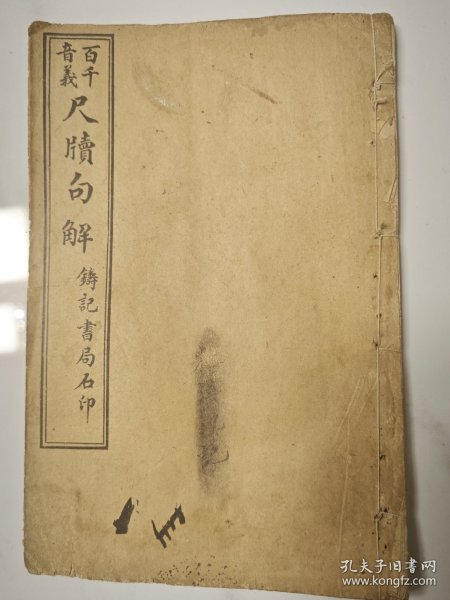 百千
音義
尺牘句解
鑄記書局石印
孔夫子旧书网
www.kongfz.com